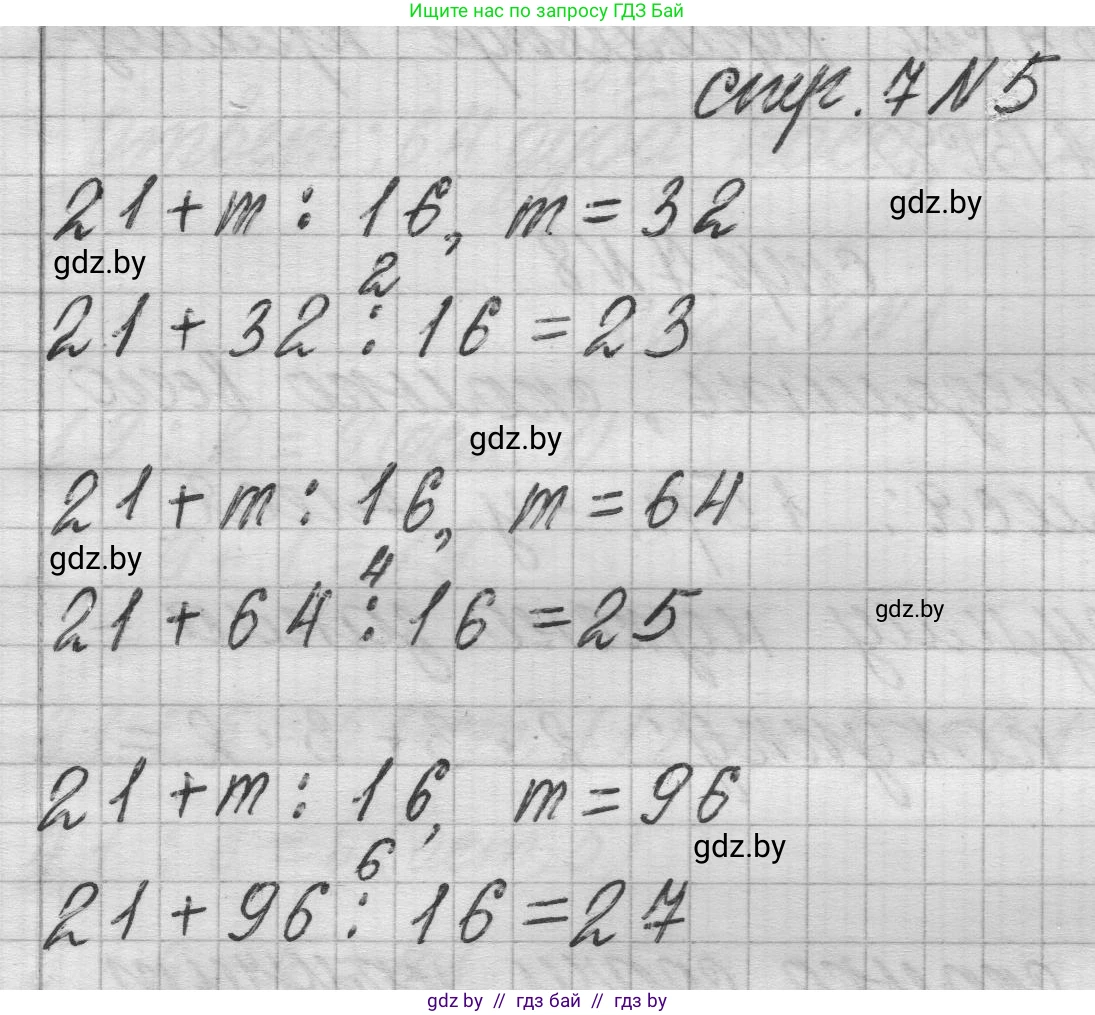 Ищите нас по запросу ГДЗ Бай
стр. 7 N 5
21 + m : 16, m = 32
gdz.by
gdz.by
2
21 + 32 : 16 = 23
gdz.by
21 + m : 16, m = 64
gdz.by
4
21 + 64 : 16 = 25
gdz.by
21 + m : 16, m = 96
gdz.by
6
21 + 96 : 16 = 27
gdz.by // гдз бай // гдз by